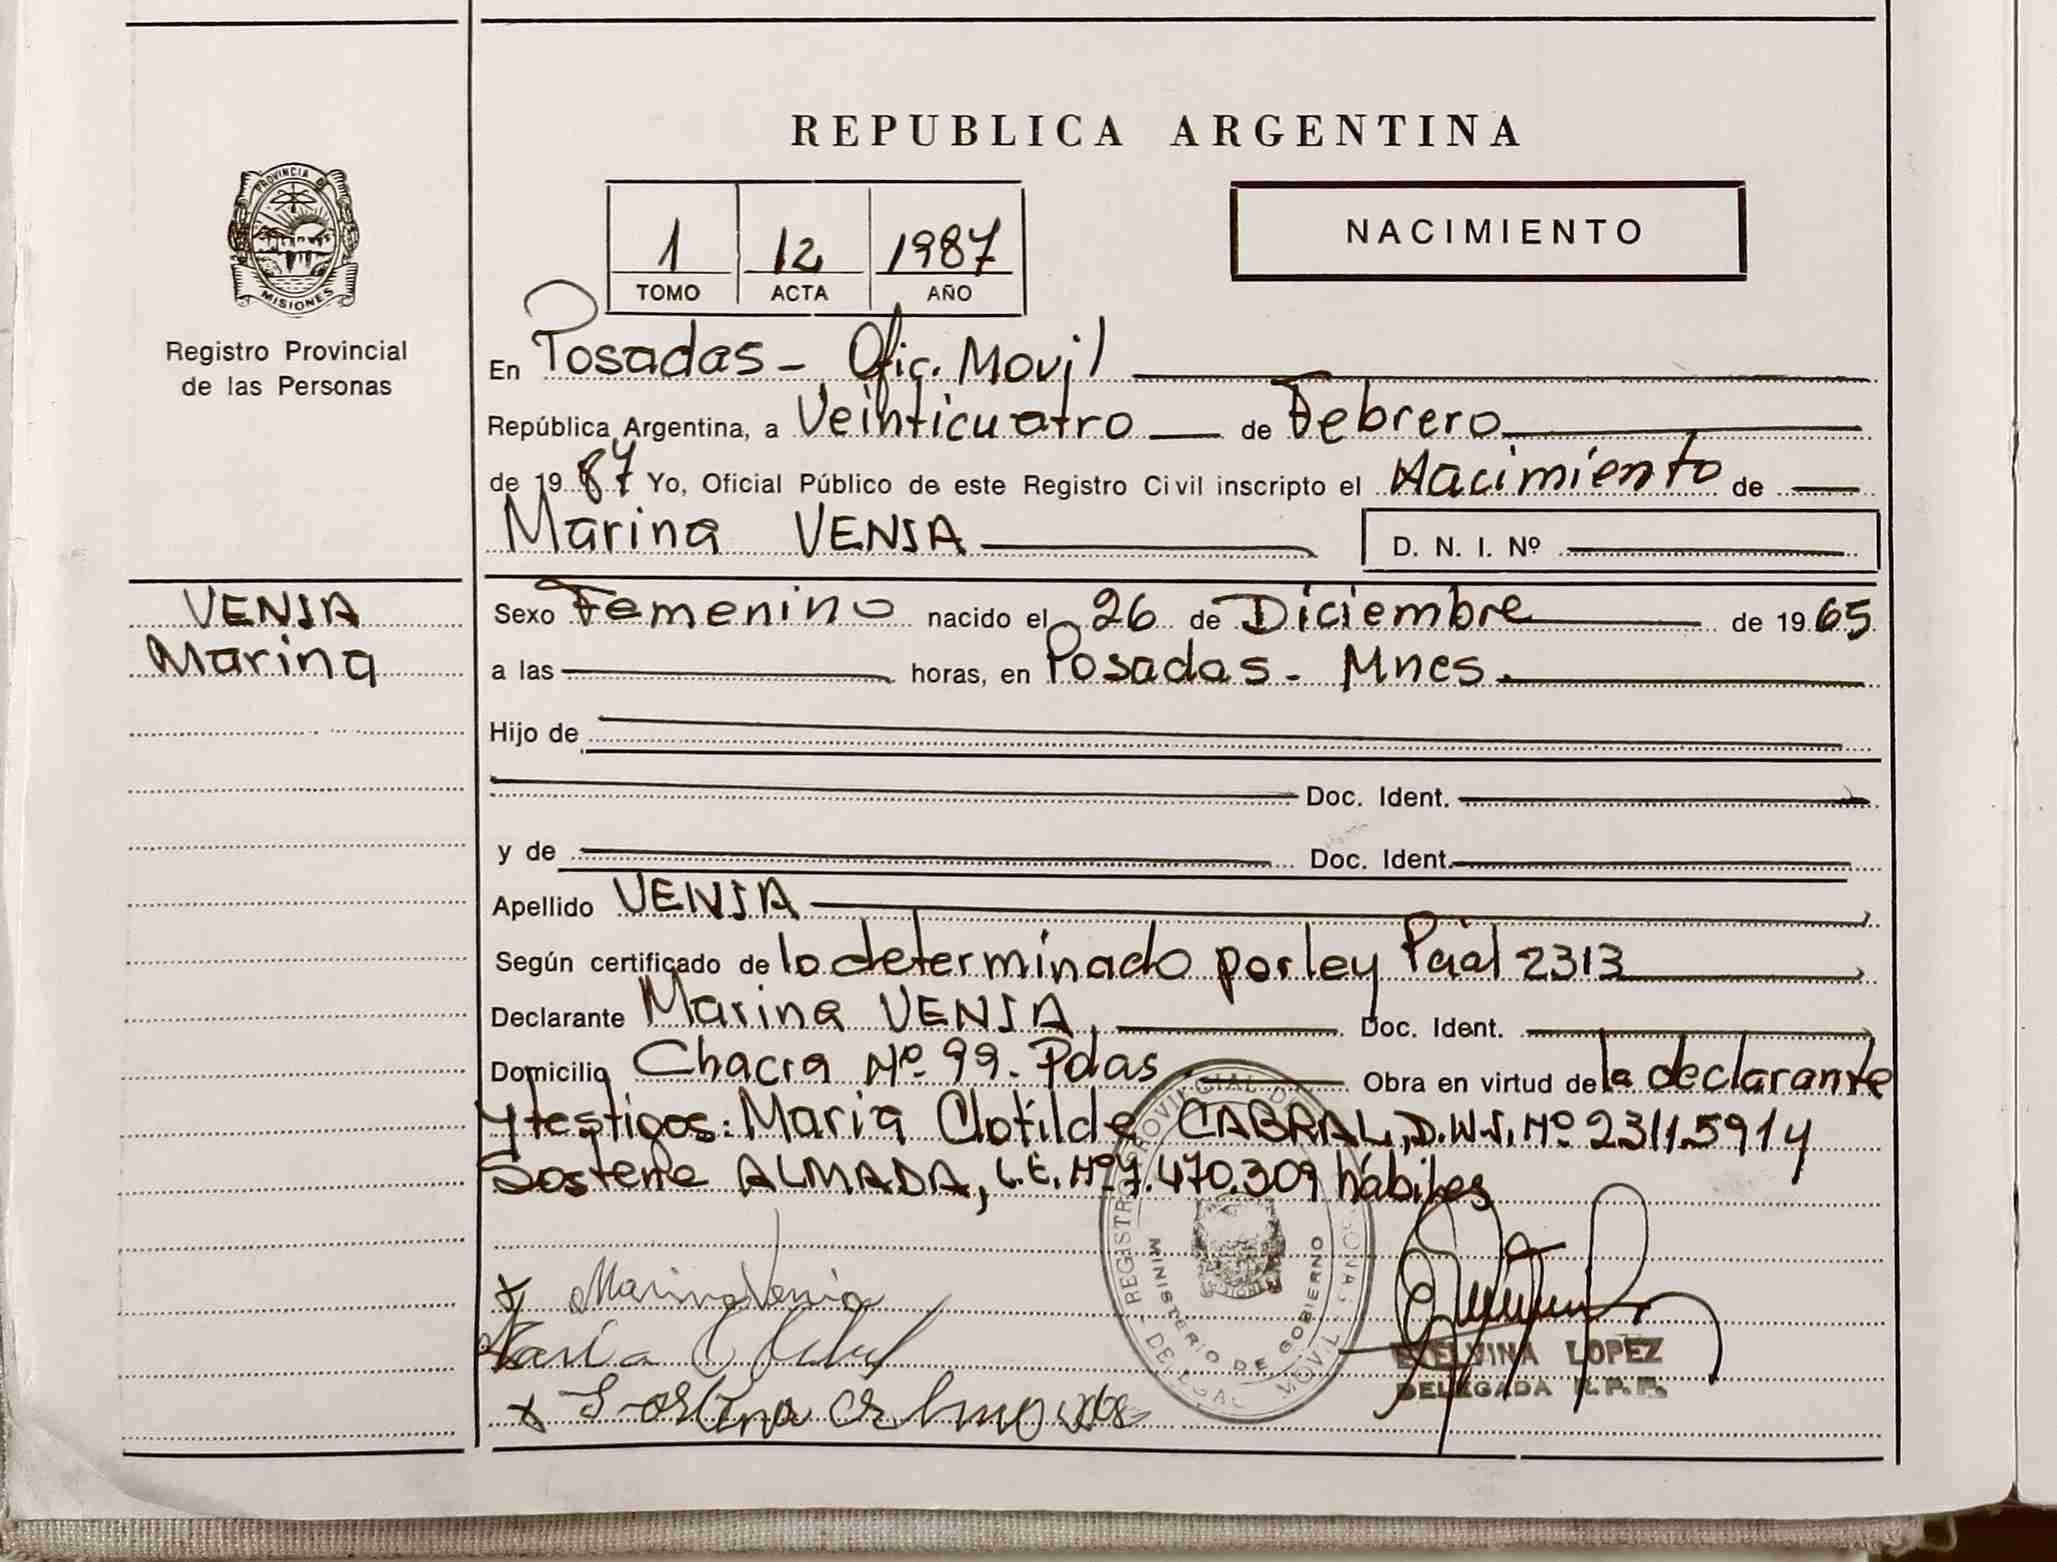 REPUBLICA ARGENTINA
PROVINCIA DE
MISIONES
Registro Provincial
de las Personas
1 12 1987
TOMO ACTA AÑO
NACIMIENTO
En Posadas - Ofic. Movil
República Argentina, a Veinticuatro de Febrero
de 1987 Yo, Oficial Público de este Registro Civil inscripto el Nacimiento de
Marina VENIA D. N. I. Nº
VENIA
Marina
Sexo Femenino nacido el 26 de Diciembre de 1965
a las horas, en Posadas - Mnes.
Hijo de
Doc. Ident.
y de Doc. Ident.
Apellido VENIA
Según certificado de lo determinado por ley Pcial 2313
Declarante Marina VENIA, Doc. Ident.
Domicilio Chacra Nº 99. Pdas Obra en virtud de la declarante
y testigos: Maria Clotilde CABRAL, D.N.I. Nº 23115914
Sostene ALMADA, L.E. Nº 7.470.309 hábiles
Marina Venia
Maria
REGISTRO PROVINCIAL DE
MINISTERIO DE GOBIERNO
MOVIL
LOPEZ
DELEGADA R.P.P.